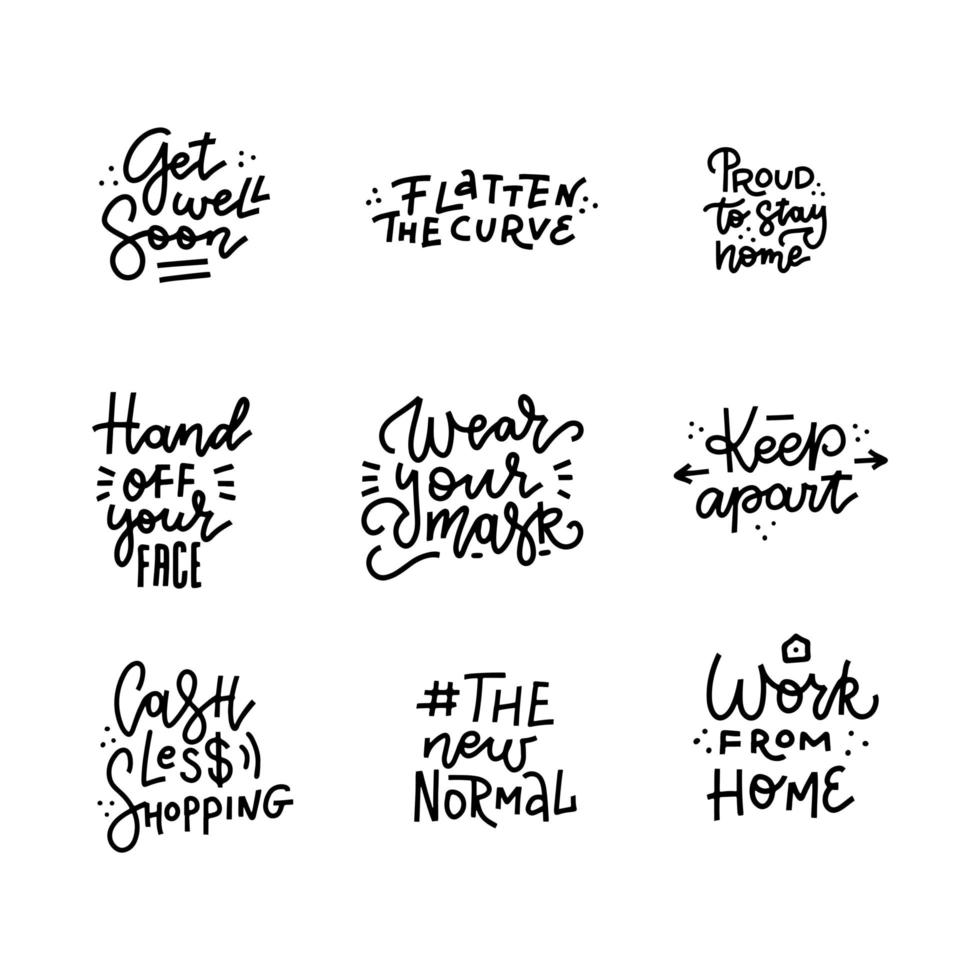 Get
well
Soon
FLaTTEN
THE CURVE
PROUD
to stay
home
Hand
OFF
your
FACE
Wear
your
mask
Keep
apart
CasH
Les$
SHOPPING
#THE
new
NORMaL
Work
FROM
HOME